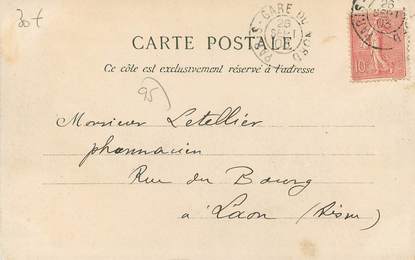 30 f
PARIS - GARE DU NORD
26
SEPT
03
PARIS
26
SEPT
03
10
CARTE POSTALE
Ce côté est exclusivement réservé à l'adresse
95
Monsieur Letellier
pharmacien
Rue du Bourg
à Laon (Aisne)